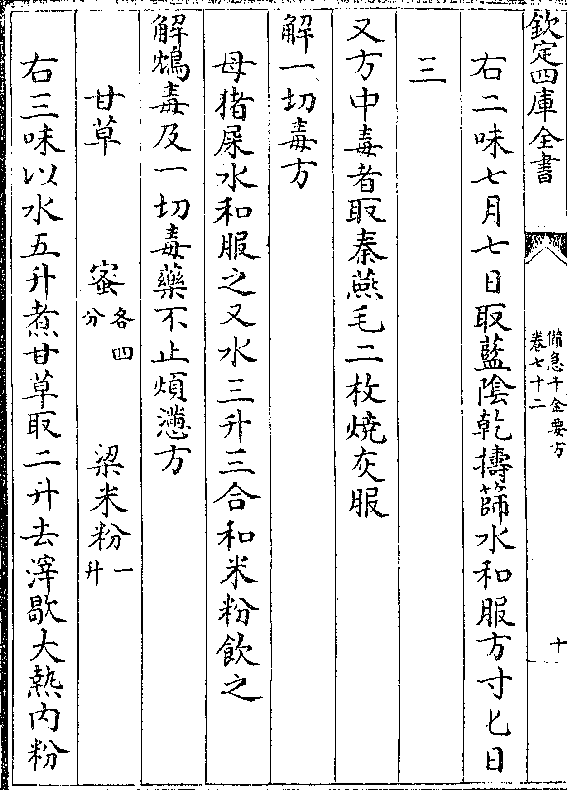 欽定四庫全書
備急千金要方
卷七十二
十
右二味七月七日取藍陰乾擣篩水和服方寸匕日
三
又方中毒者取秦燕毛二枚燒灰服
解一切毒方
母猪屎水和服之又水三升三合和米粉飲之
解鴆毒及一切毒藥不止煩懣方
甘草 蜜各四分 粱米粉一升
右三味以水五升煮甘草取二升去滓歇大熱内粉